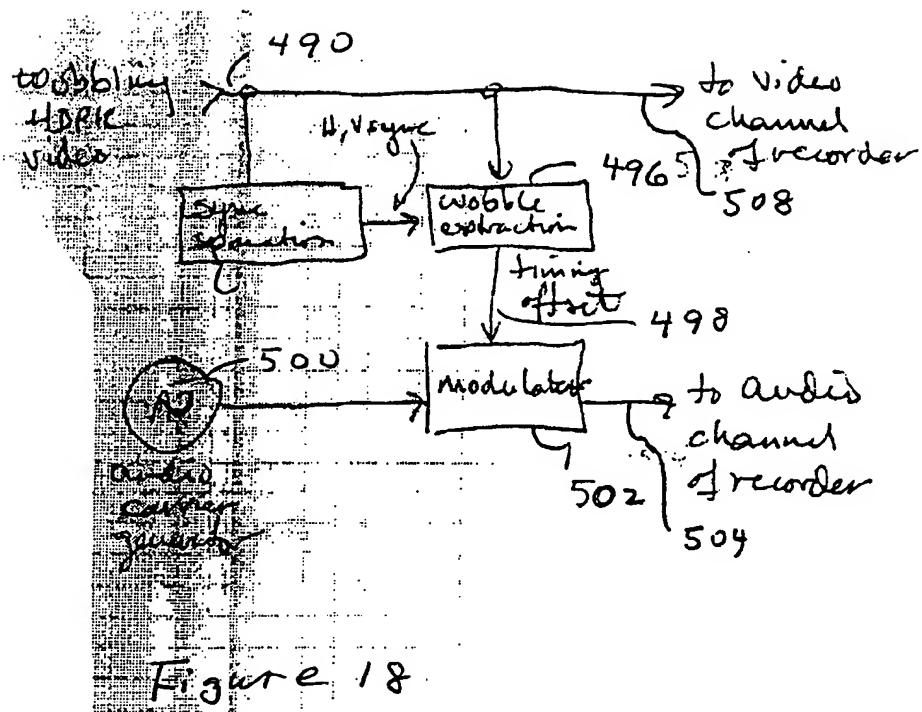 490
wobbling
HDPK
video
to video
channel
of recorder
H, Vsync
496
508
sync
separation
wobble
extraction
timing
offset
498
500
modulator
to audio
channel
of recorder
502
504
audio
carrier
Figure 18